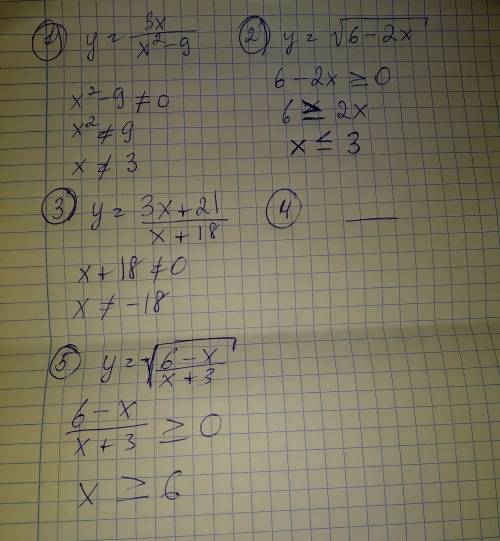 1) y = 3x / x² - 9
x² - 9 ≠ 0
x² ≠ 9
x ≠ 3
2) y = √6 - 2x
6 - 2x ≥ 0
6 ≥ 2x
x ≤ 3
3) y = 3x + 21 / x + 18
x + 18 ≠ 0
x ≠ -18
4) —
5) y = √6 - x / x + 3
6 - x / x + 3 ≥ 0
x ≥ 6